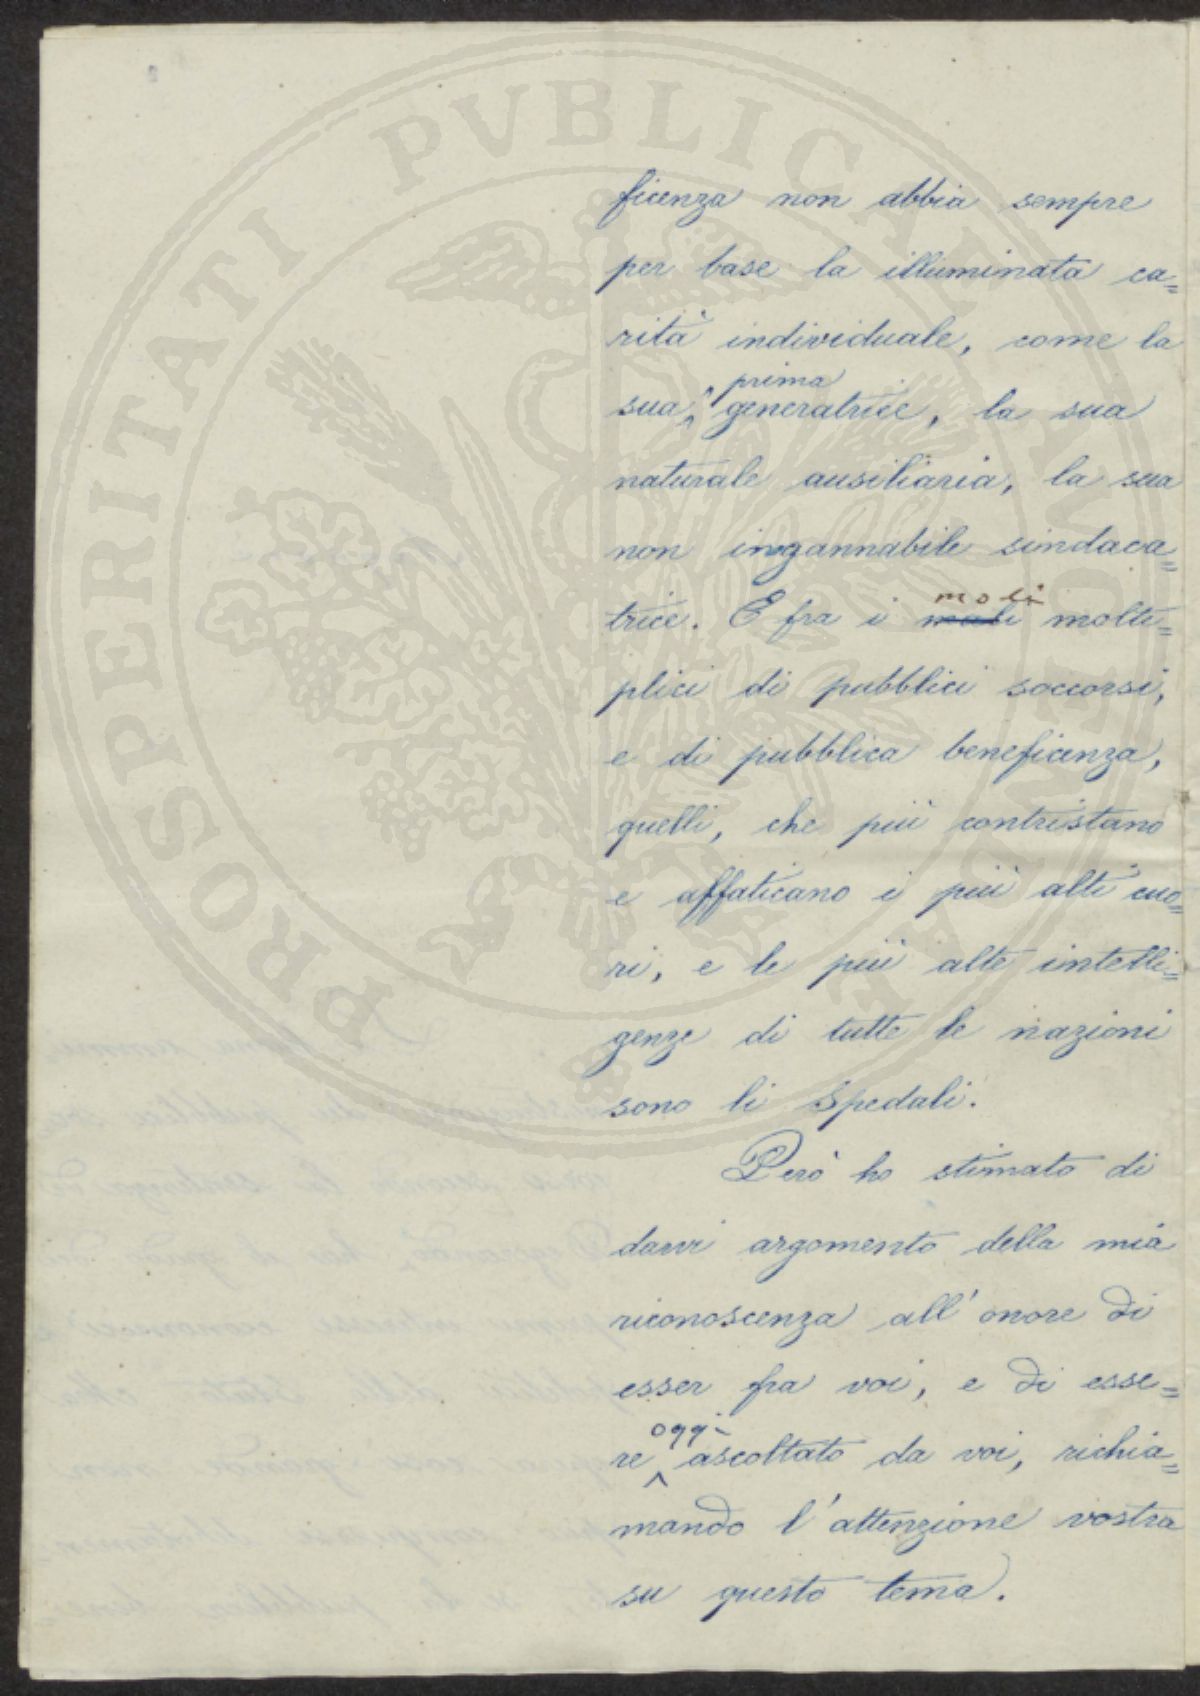 ficenza non abbia sempre
per base la illuminata ca=
rità individuale, come la
prima
sua generatrice, la sua
naturale ausiliaria, la sua
non ingannabile sindaca=
modi
trice. E fra i modi molte=
plici di pubblici soccorsi,
e di pubblica beneficenza,
quelli, che più contristano
e affaticano i più alti cuo=
ri, e le più alte intelli=
genze di tutte le nazioni
sono li Spedali.
Però ho stimato di
darvi argomento della mia
riconoscenza all'onore di
esser fra voi, e di esse=
oggi
re ascoltato da voi, richia=
mando l'attenzione vostra
su questo tema.
PROSPERITATI PVBLICAE